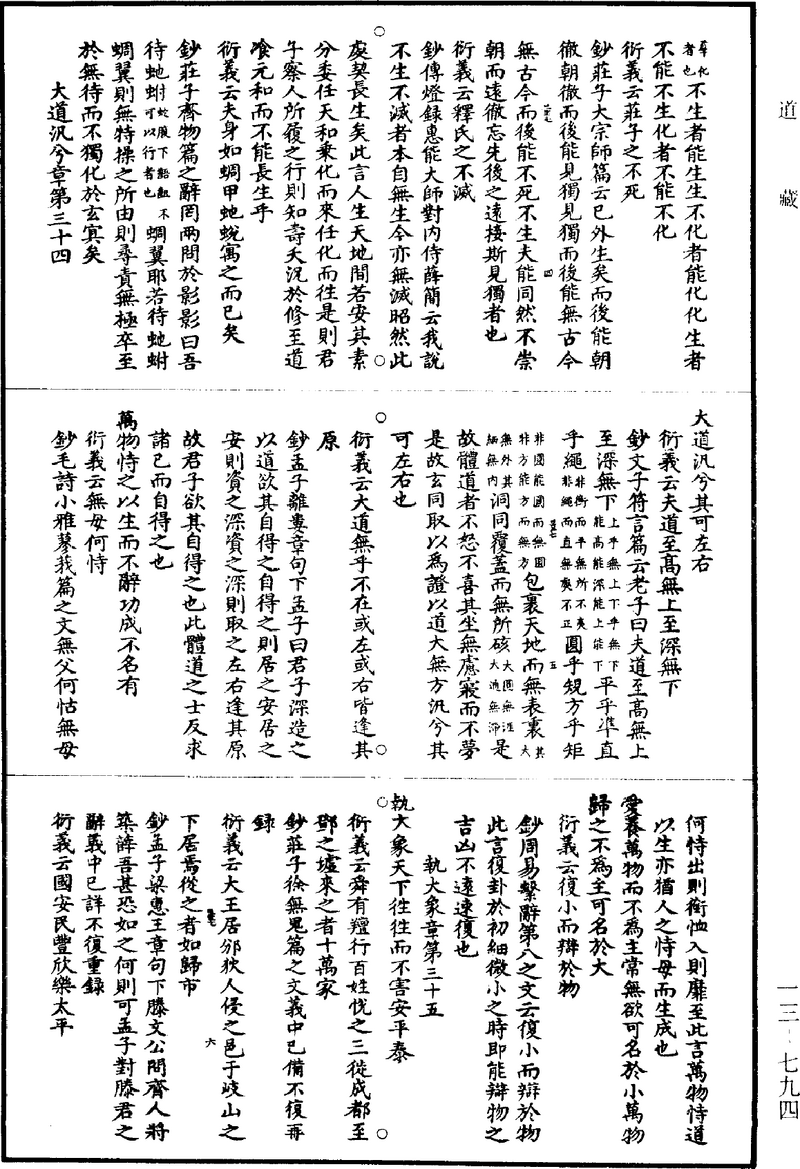 道藏
群化者也不生者能生生不化者能化化生者
不能不生化者不能不化
衍義云莊子之不死
鈔莊子大宗師篇云已外生矣而後能朝
徹朝徹而後能見獨見獨而後能無古今
無古今而後能不死不生夫能同然不崇
朝而遠徹忘先後之遠接斯見獨者也
衍義云釋氏之不滅
鈔傳燈録惠能大師對內侍薛簡云我說
不生不滅者本自無生今亦無滅昭然此
處契長生矣此言人生天地間若安其素
分委任天和乗化而來任化而往是則君
子察人所履之行則知壽夭況於修王道
飡元和而不能長生乎
衍義云夫身如蜩甲虵蛻寓之而已矣
鈔莊子齊物篇之辭罔兩問於影影曰吾
待虵蚹蚹蛇腹下齟齬可以行者也不蜩翼耶若待虵蚹
蜩翼則無特操之所由則尋責無極卒至
於無待而不獨化於玄㝠矣
大道汎兮章第三十四
大道汎兮其可左右
衍義云夫道至髙無上至深無下
鈔文子符言篇云老子曰夫道至髙無上
至深無下上乎無上下乎無下能髙能深能上能下平乎準直
乎繩非衡而平無所不夷非繩而直無矣不正圓乎規方乎矩
非圓能圓而無圓非方能方而無方包裹天地而無表裏其大
無外其細無内洞同覆蓋而無所硋大圓無涯大通無滯是
故體道者不怒不喜其坐無慮寢而不夢
是故玄同取以為證以道大無方汎兮其
可左右也
衍義云大道無乎不在或左或右皆逢其
原
鈔孟子離婁章句下孟子曰君子深造之
以道欲其自得之自得之則居之安居之
安則資之深資之深則取之左右逢其原
故君子欲其自得之也此體道之士反求
諸已而自得之也
萬物恃之以生而不辭功成不名有
衍義云無母何恃
鈔毛詩小雅蓼莪篇之文無父何怙無母
何恃出則銜恤入則靡至此言萬物恃道
以生亦猶人之恃母而生成也
愛養萬物而不為主常無欲可名於小萬物
歸之不為主可名於大
衍義云復小而辯於物
鈔周易繫辭第八之文云復小而辯於物
此言復卦於初細微小之時即能辯物之
吉凶不遠速復也
執大象章第三十五
執大象天下往往而不害安平泰
衍義云舜有羶行百姓悅之三徙成都至
鄧之墟來之者十萬家
鈔莊子徐無鬼篇之文義中已備不復再
録
衍義云大王居邠狄人侵之邑于岐山之
下居焉從之者如歸市
鈔孟子梁惠王章句下滕文公問齊人將
築薛吾甚恐如之何則可孟子對滕君之
辭義中已詳不復重録
衍義云國安民豐欣樂太平
一三-七九四